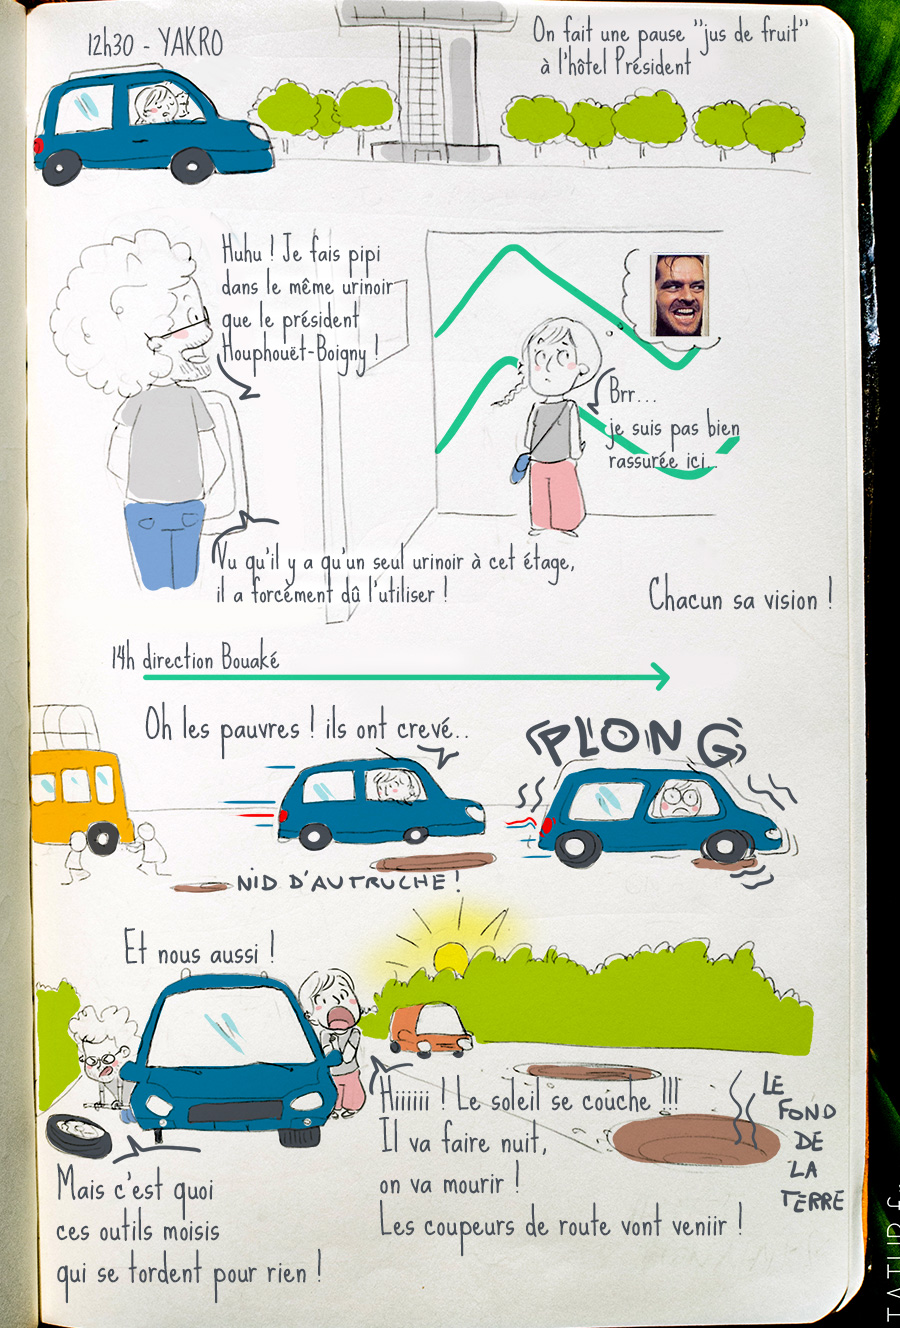 12h30 - YAKRO
On fait une pause "jus de fruit"
à l'hôtel Président
Huhu ! Je fais pipi
dans le même urinoir
que le président
Houphouët-Boigny !
Brr...
je suis pas bien
rassurée ici...
Vu qu'il y a qu'un seul urinoir à cet étage,
il a forcément dû l'utiliser !
Chacun sa vision !
14h direction Bouaké
Oh les pauvres ! ils ont crevé..
PLONG
NID D'AUTRUCHE !
Et nous aussi !
Hiiiiiii ! Le soleil se couche !!!
Il va faire nuit,
on va mourir !
Les coupeurs de route vont veniir !
LE
FOND
DE
LA
TERRE
Mais c'est quoi
ces outils moisis
qui se tordent pour rien !